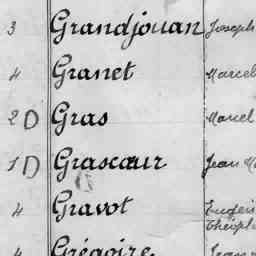 3 Grandjouan Joseph
4 Granet Marcel
2 D Gras Marcel
1 D Grascœur Jean M
4 Gravot Eugèn
Théoph
4 Grégoire Jean